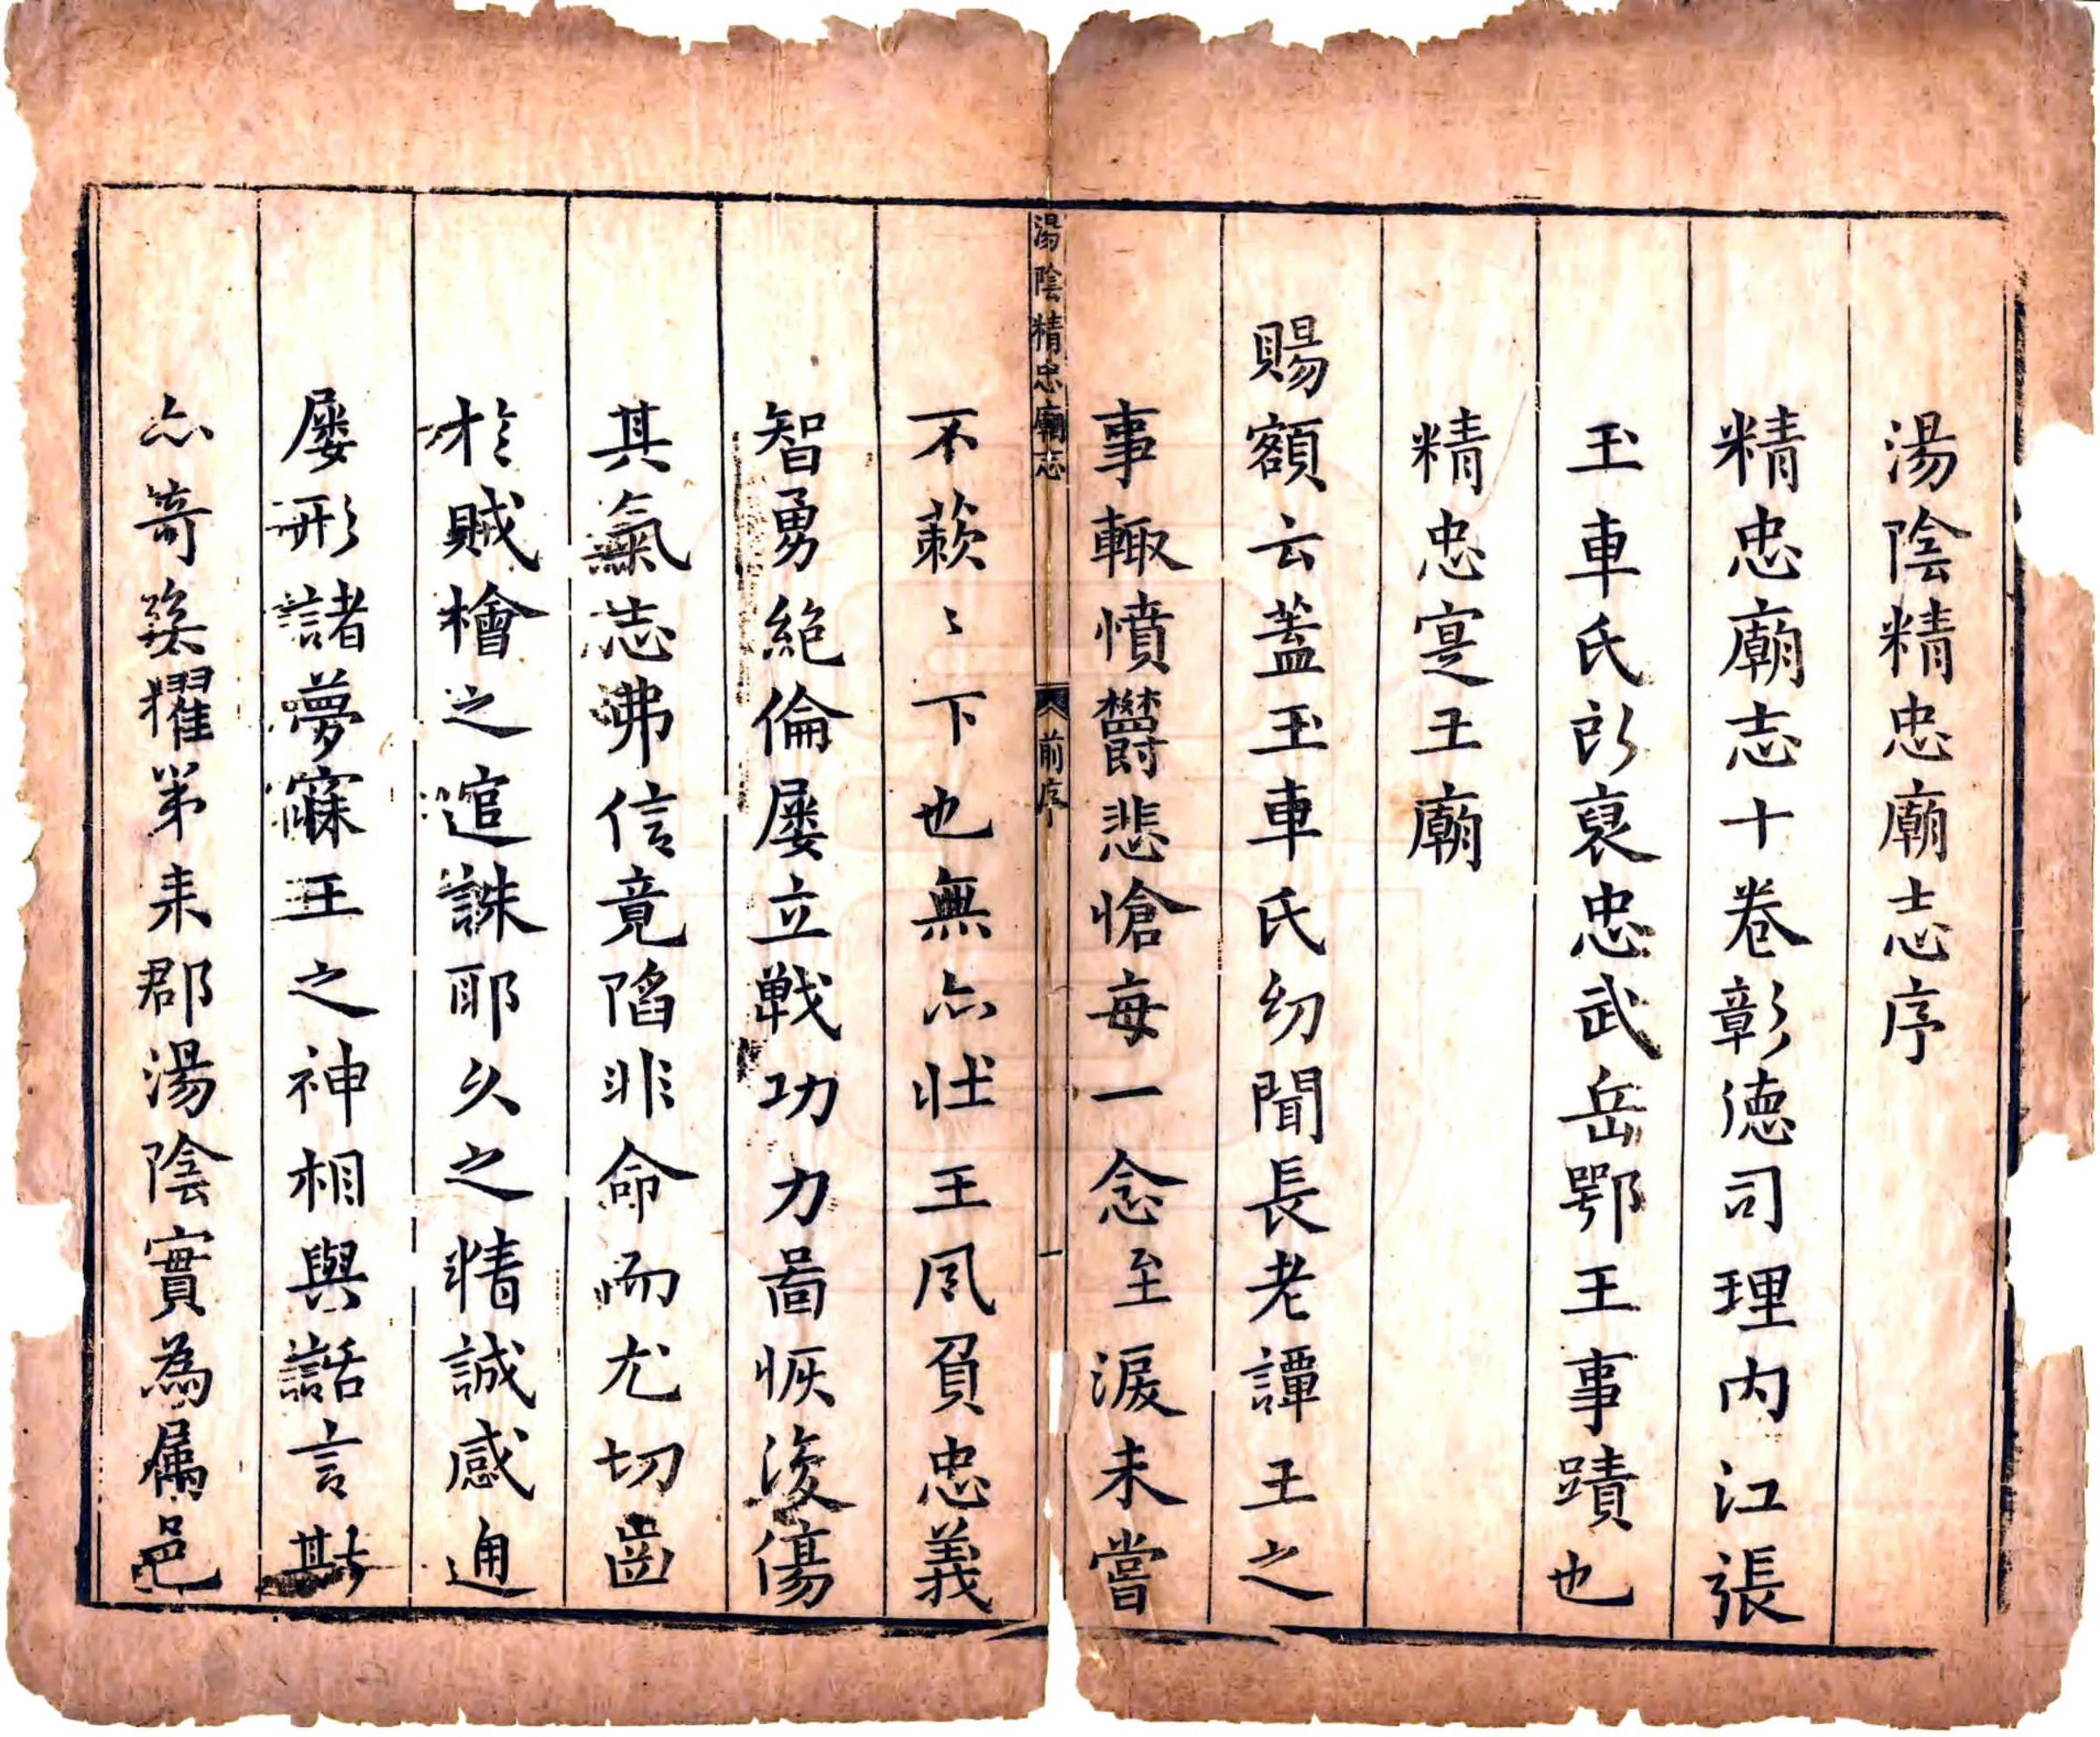 湯陰精忠廟志序
精忠廟志十卷彰徳司理内江張
玉車氏所裒忠武岳鄂王事蹟也
精忠寔王廟
賜額云蓋玉車氏幼聞長老譚王之
事輙憤欝悲愴每一念至淚未嘗
湯陰精忠廟志 前序 一
不蔌〻下也無亦壯王夙負忠義
智勇絶倫屡立戦功力啚恢復傷
其氣志弗信竟陷非命而尤切齒
於賊檜之逭誅耶久之精誠感通
屡形諸夢寐王之神相與語言斯
亦竒矣擢第来郡湯陰實為属邑